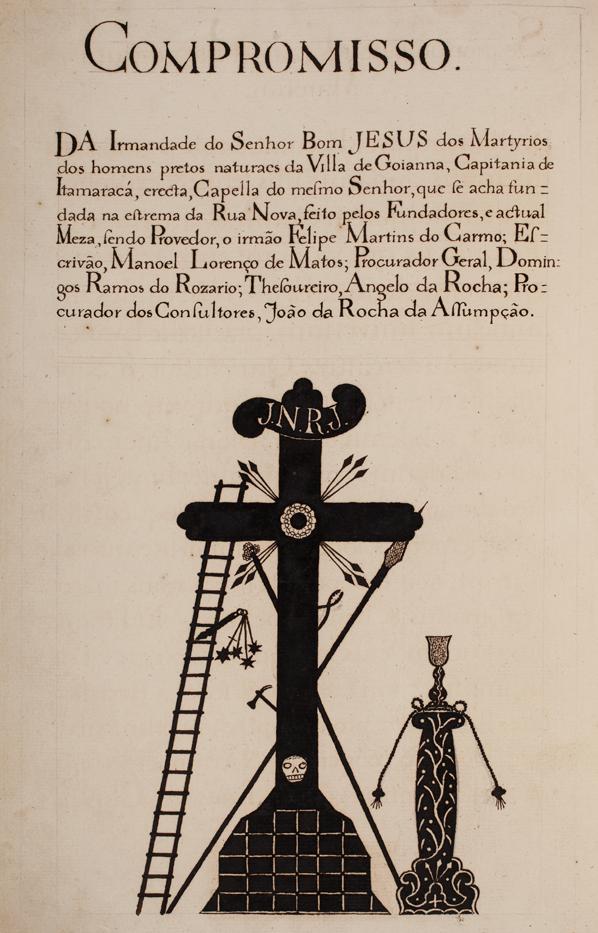 COMPROMISSO.
DA Irmandade do Senhor Bom JESUS dos Martyrios
dos homens pretos naturaes da Villa de Goianna, Capitania de
Itamaracá, erecta, Capella do meſmo Senhor, que ſe acha fun=
dada na eſtrema da Rua Nova, feito pelos Fundadores, e actual
Meza, ſendo Provedor, o irmão Felipe Martins do Carmo; Eſ=
crivão, Manoel Lorenço de Matos; Procurador Geral, Domin=
gos Ramos do Rozario; Theſoureiro, Angelo da Rocha; Pro=
curador dos Conſultores, João da Rocha da Aſſumpção.
J.N.R.J.